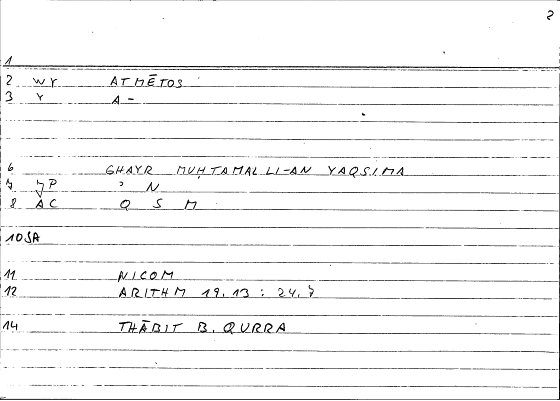 2
1
2 WY ATMĒTOS
3 Y A-
6 GHAYR MUḤTAMAL LI-AN YAQSIMA
7 JP ʾ N
8 AC Q S M
10 SA
11 NICOM
12 ARITHM 19.13 : 24.7
14 THĀBIT B. QURRA